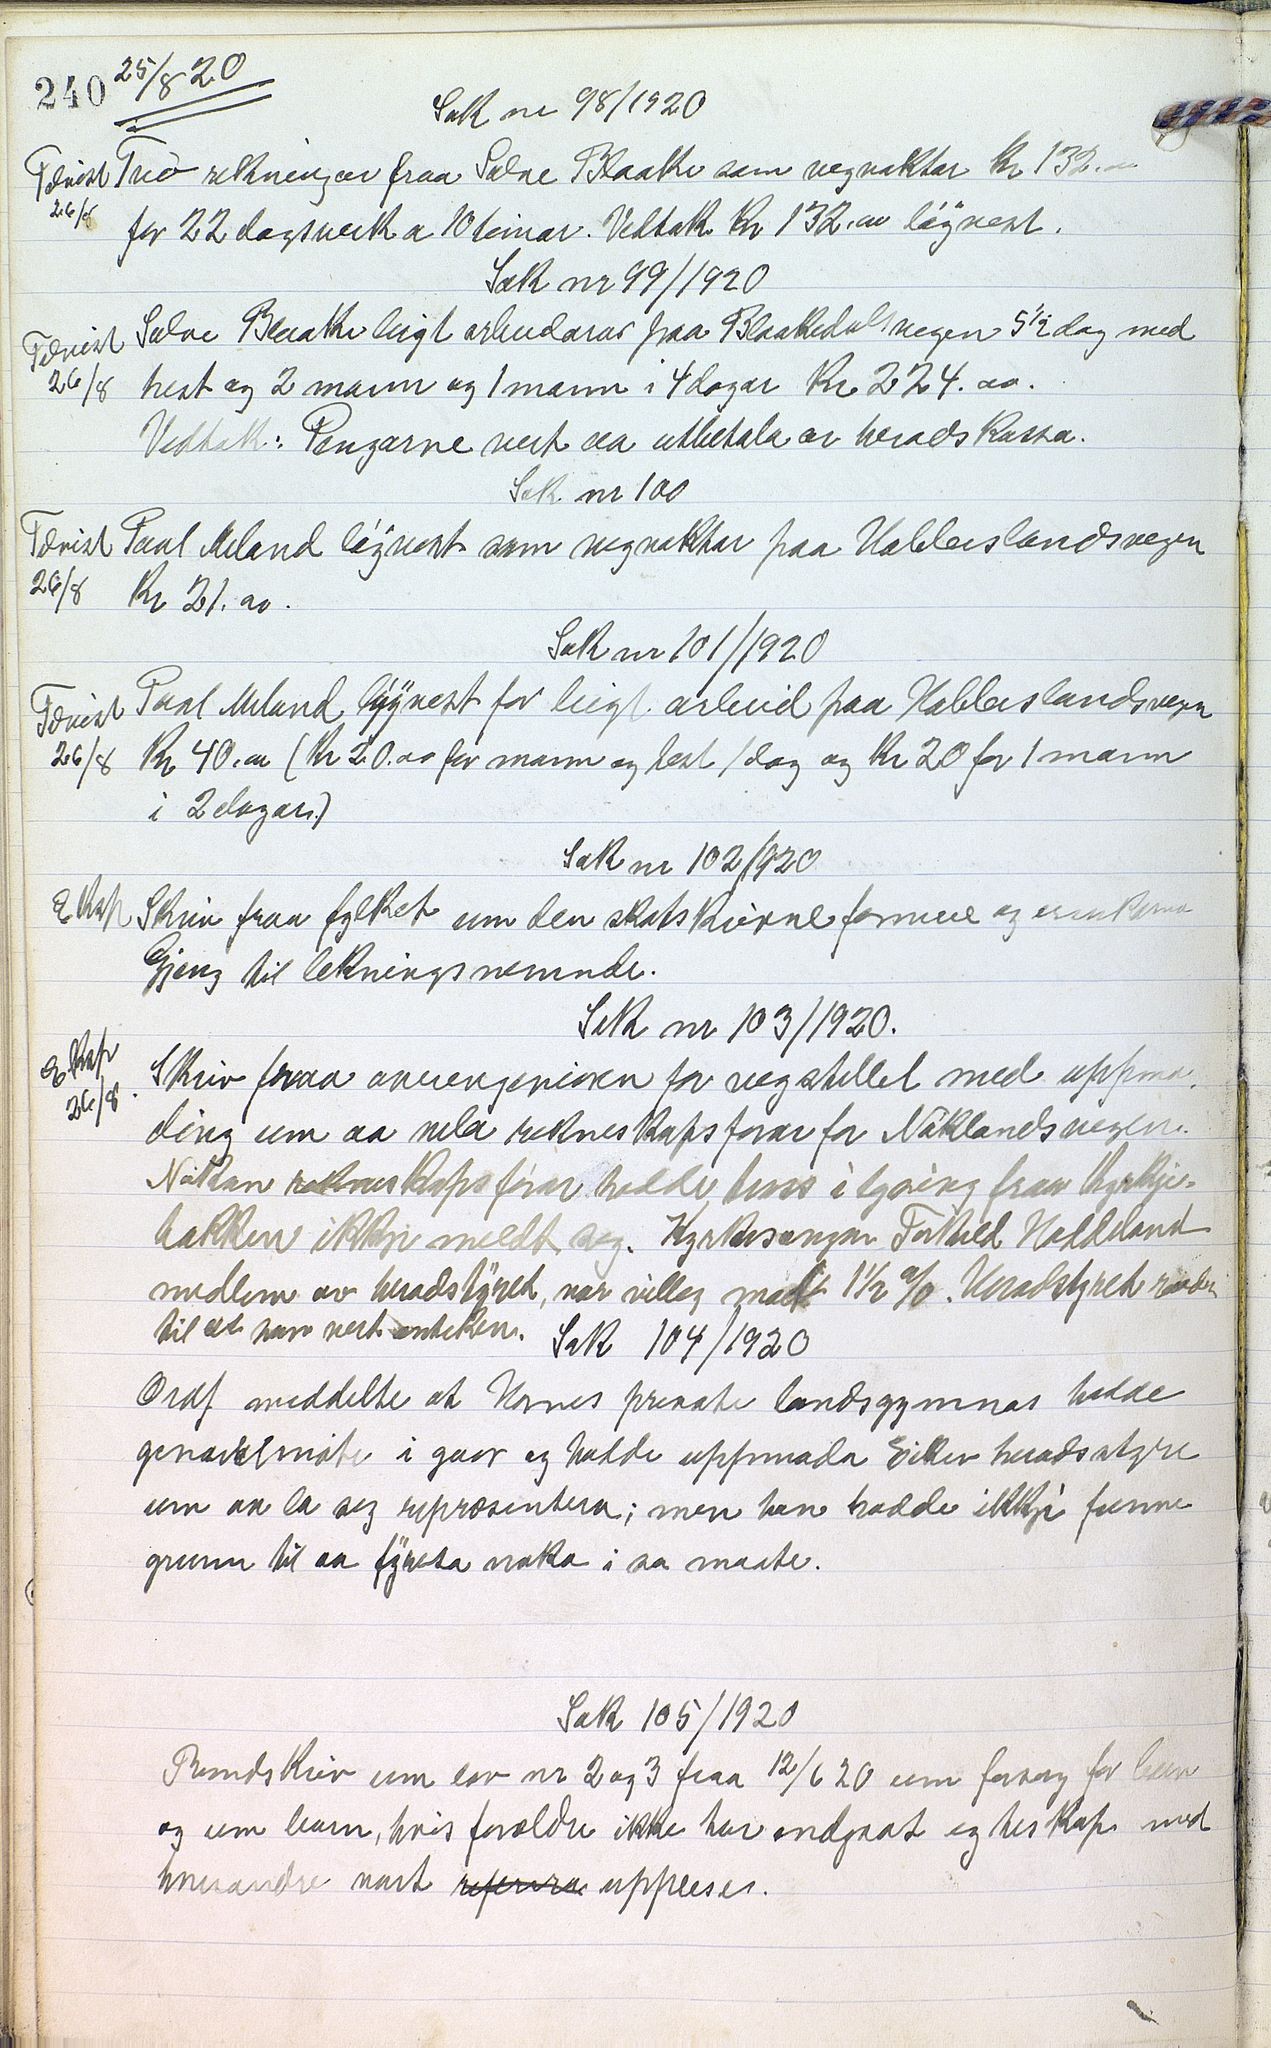 240 25/8 20
Sak nr 98/1920
Tvo rekningar fraa Salve Blaake som vegvaktar Kr 132.00
Tilvist 26/8
for 22 dagsverk a 10 timar. Vedtak Kr 132.00 løyvest.
Sak nr 99/1920
Salve Blaake leigt arbeidarar paa Blaakedalsvegen 5 1/2 dag med
Tilvist 26/8
hest og 2 mann og 1 mann i 4 dagar Kr 224.00.
Vedtak: Pengarne vert aa utbetala av heradskassa.
Sak nr 100
Paal Meland løyvest som vegvaktar paa Habbeslandsvegen
Tilvist 26/8
Kr 21.00.
Sak nr 101/1920
Paal Meland løyvest for leigt arbeid paa Habbeslandsvegen
Tilvist 26/8
Kr 40.00 (Kr 20.00 for mann og hest 1 dag og Kr 20 for 1 mann
i 2 dagar.)
Sak nr 102/1920
Eksp Skriv fraa fylket um den skatskrivne formue og
Gjeng til likningsnemnde.
Sak nr 103/1920.
Eksp 26/8. Skriv fraa overingeniøren for vegstellet med uppmo-
ding um aa vela rekneskapsførar for Nåklandsvegen.
Nokon rekneskapsførar hadde huss i lysing fraa Kyrkje-
bakken ikkje meldt seg. Kyrkesongar Torkild Haddeland
medlem av heradstyret, var villeg mot 1 1/2 %. Heradstyret raader
til at han vert anteken.
Sak 104/1920
Ordf meddelte at Hornes private landsgymnas hadde
generalmøte i gaar og hadde uppmoda Eiken heradstyre
um aa la seg repræsentera; men han hadde ikkje funne
grunn til aa fyreta noko i so maate.
Sak 105/1920
Rundskriv um lov nr 2 og 3 fraa 12/6 20 um forsorg for barn
og um barn, hvis forældre ikke har indgaat egteskap med
hverandre vart referera upplese.